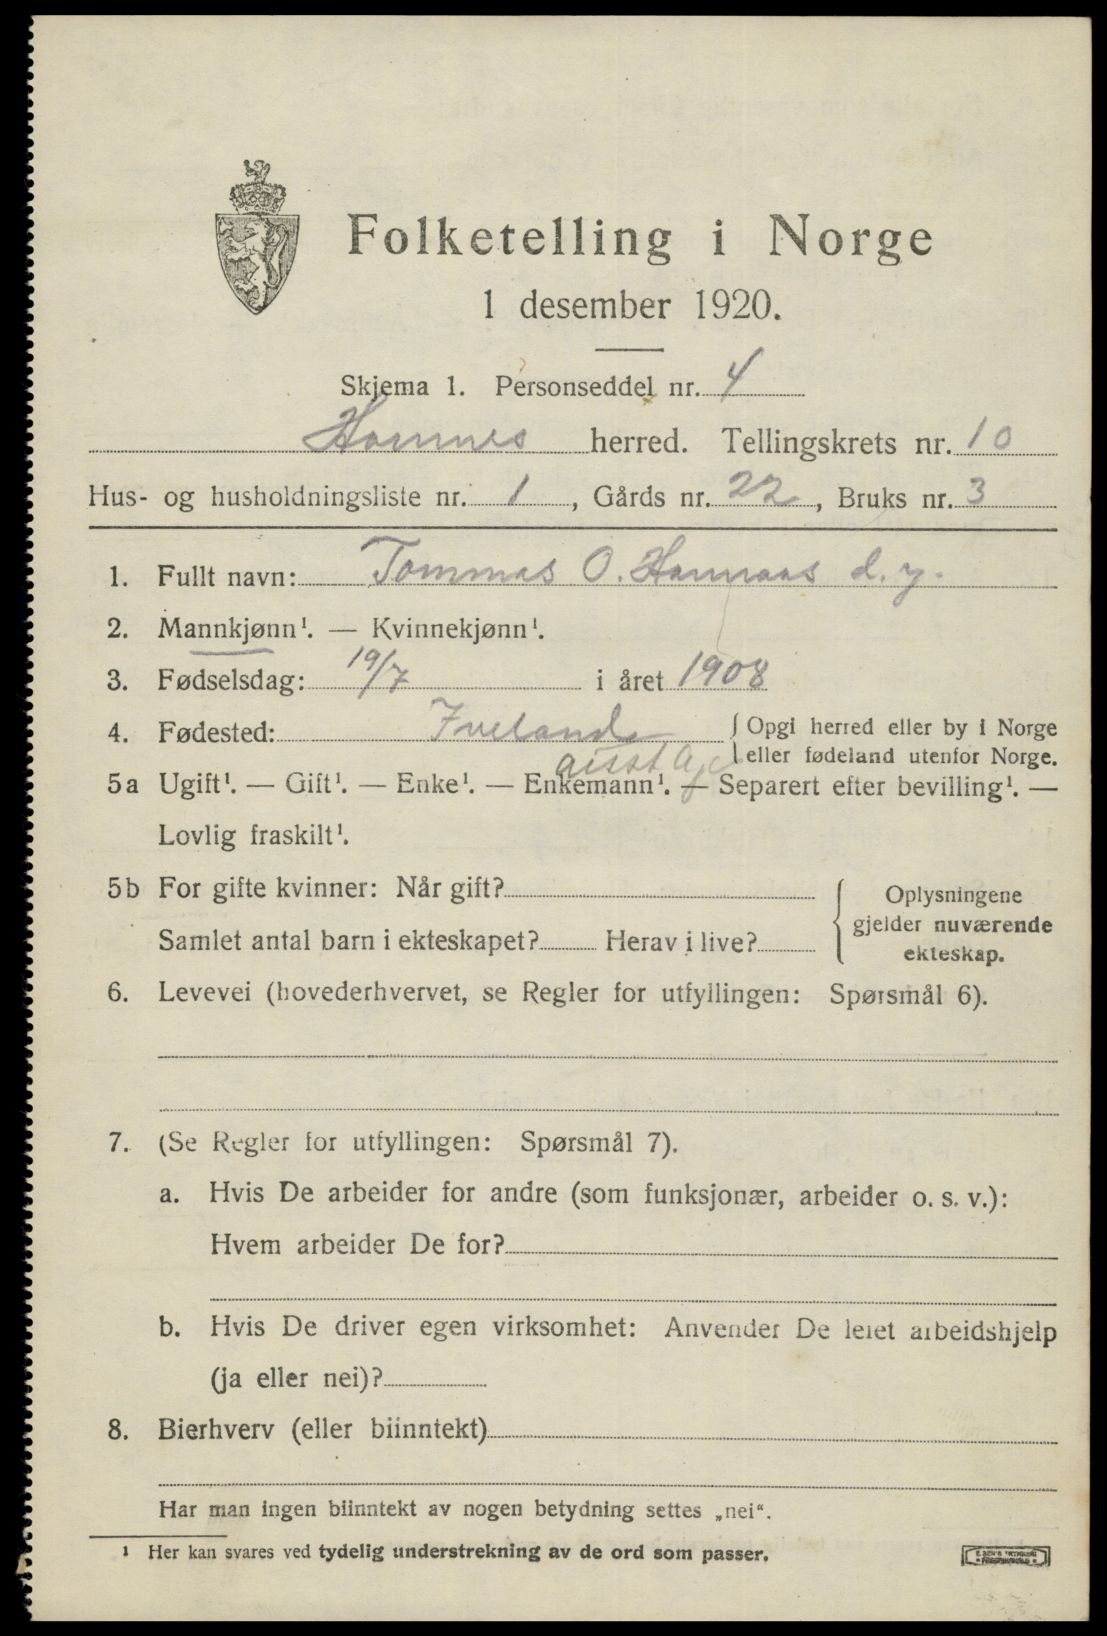 Folketelling i Norge
1 desember 1920.
Skjema 1. Personseddel nr. 4
Hornnes herred. Tellingskrets nr. 10
Hus- og husholdningsliste nr. 1, Gårds nr. 22, Bruks nr. 3
1. Fullt navn: Tommas O. Hannaas d. y.
2. Mannkjønn¹. — Kvinnekjønn¹.
3. Fødselsdag: 19/7 i året 1908
4. Fødested: Iveland { Opgi herred eller by i Norge
eller fødeland utenfor Norge.
aust Agd
5a Ugift¹. — Gift¹. — Enke¹. — Enkemann¹. — Separert efter bevilling¹. —
Lovlig fraskilt¹.
5b For gifte kvinner: Når gift?
Samlet antal barn i ekteskapet? Herav i live?
{ Oplysningene
gjelder nuværende
ekteskap.
6. Levevei (hovederhvervet, se Regler for utfyllingen: Spørsmål 6).
7. (Se Regler for utfyllingen: Spørsmål 7).
a. Hvis De arbeider for andre (som funksjonær, arbeider o. s. v.):
Hvem arbeider De for?
b. Hvis De driver egen virksomhet: Anvender De leiet arbeidshjelp
(ja eller nei)?
8. Bierhverv (eller biinntekt)
Har man ingen biinntekt av nogen betydning settes „nei“.
¹ Her kan svares ved tydelig understrekning av de ord som passer.